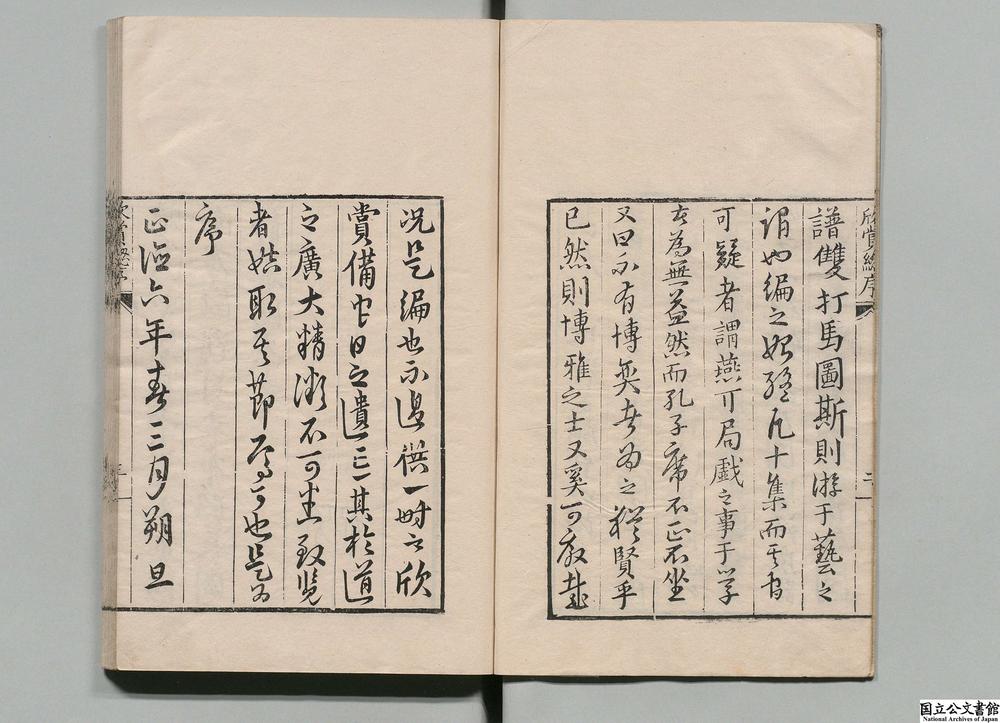 欣賞總序
譜雙打馬圖斯則游于藝之
謂也編之始終凡十集而其有
可疑者謂燕几局戲之事于學
者為無益然而孔子席不正不坐
又曰不有博奕者為之猶賢乎
已然則博雅之士又奚可廢哉
況是編也不過供一時之欣
賞備他日之遺忘其於道
之廣大精微不可盡致覽
者姑取其節焉可也是為
序
正德六年春三月朔旦
欣賞總序
国立公文書館
National Archives of Japan